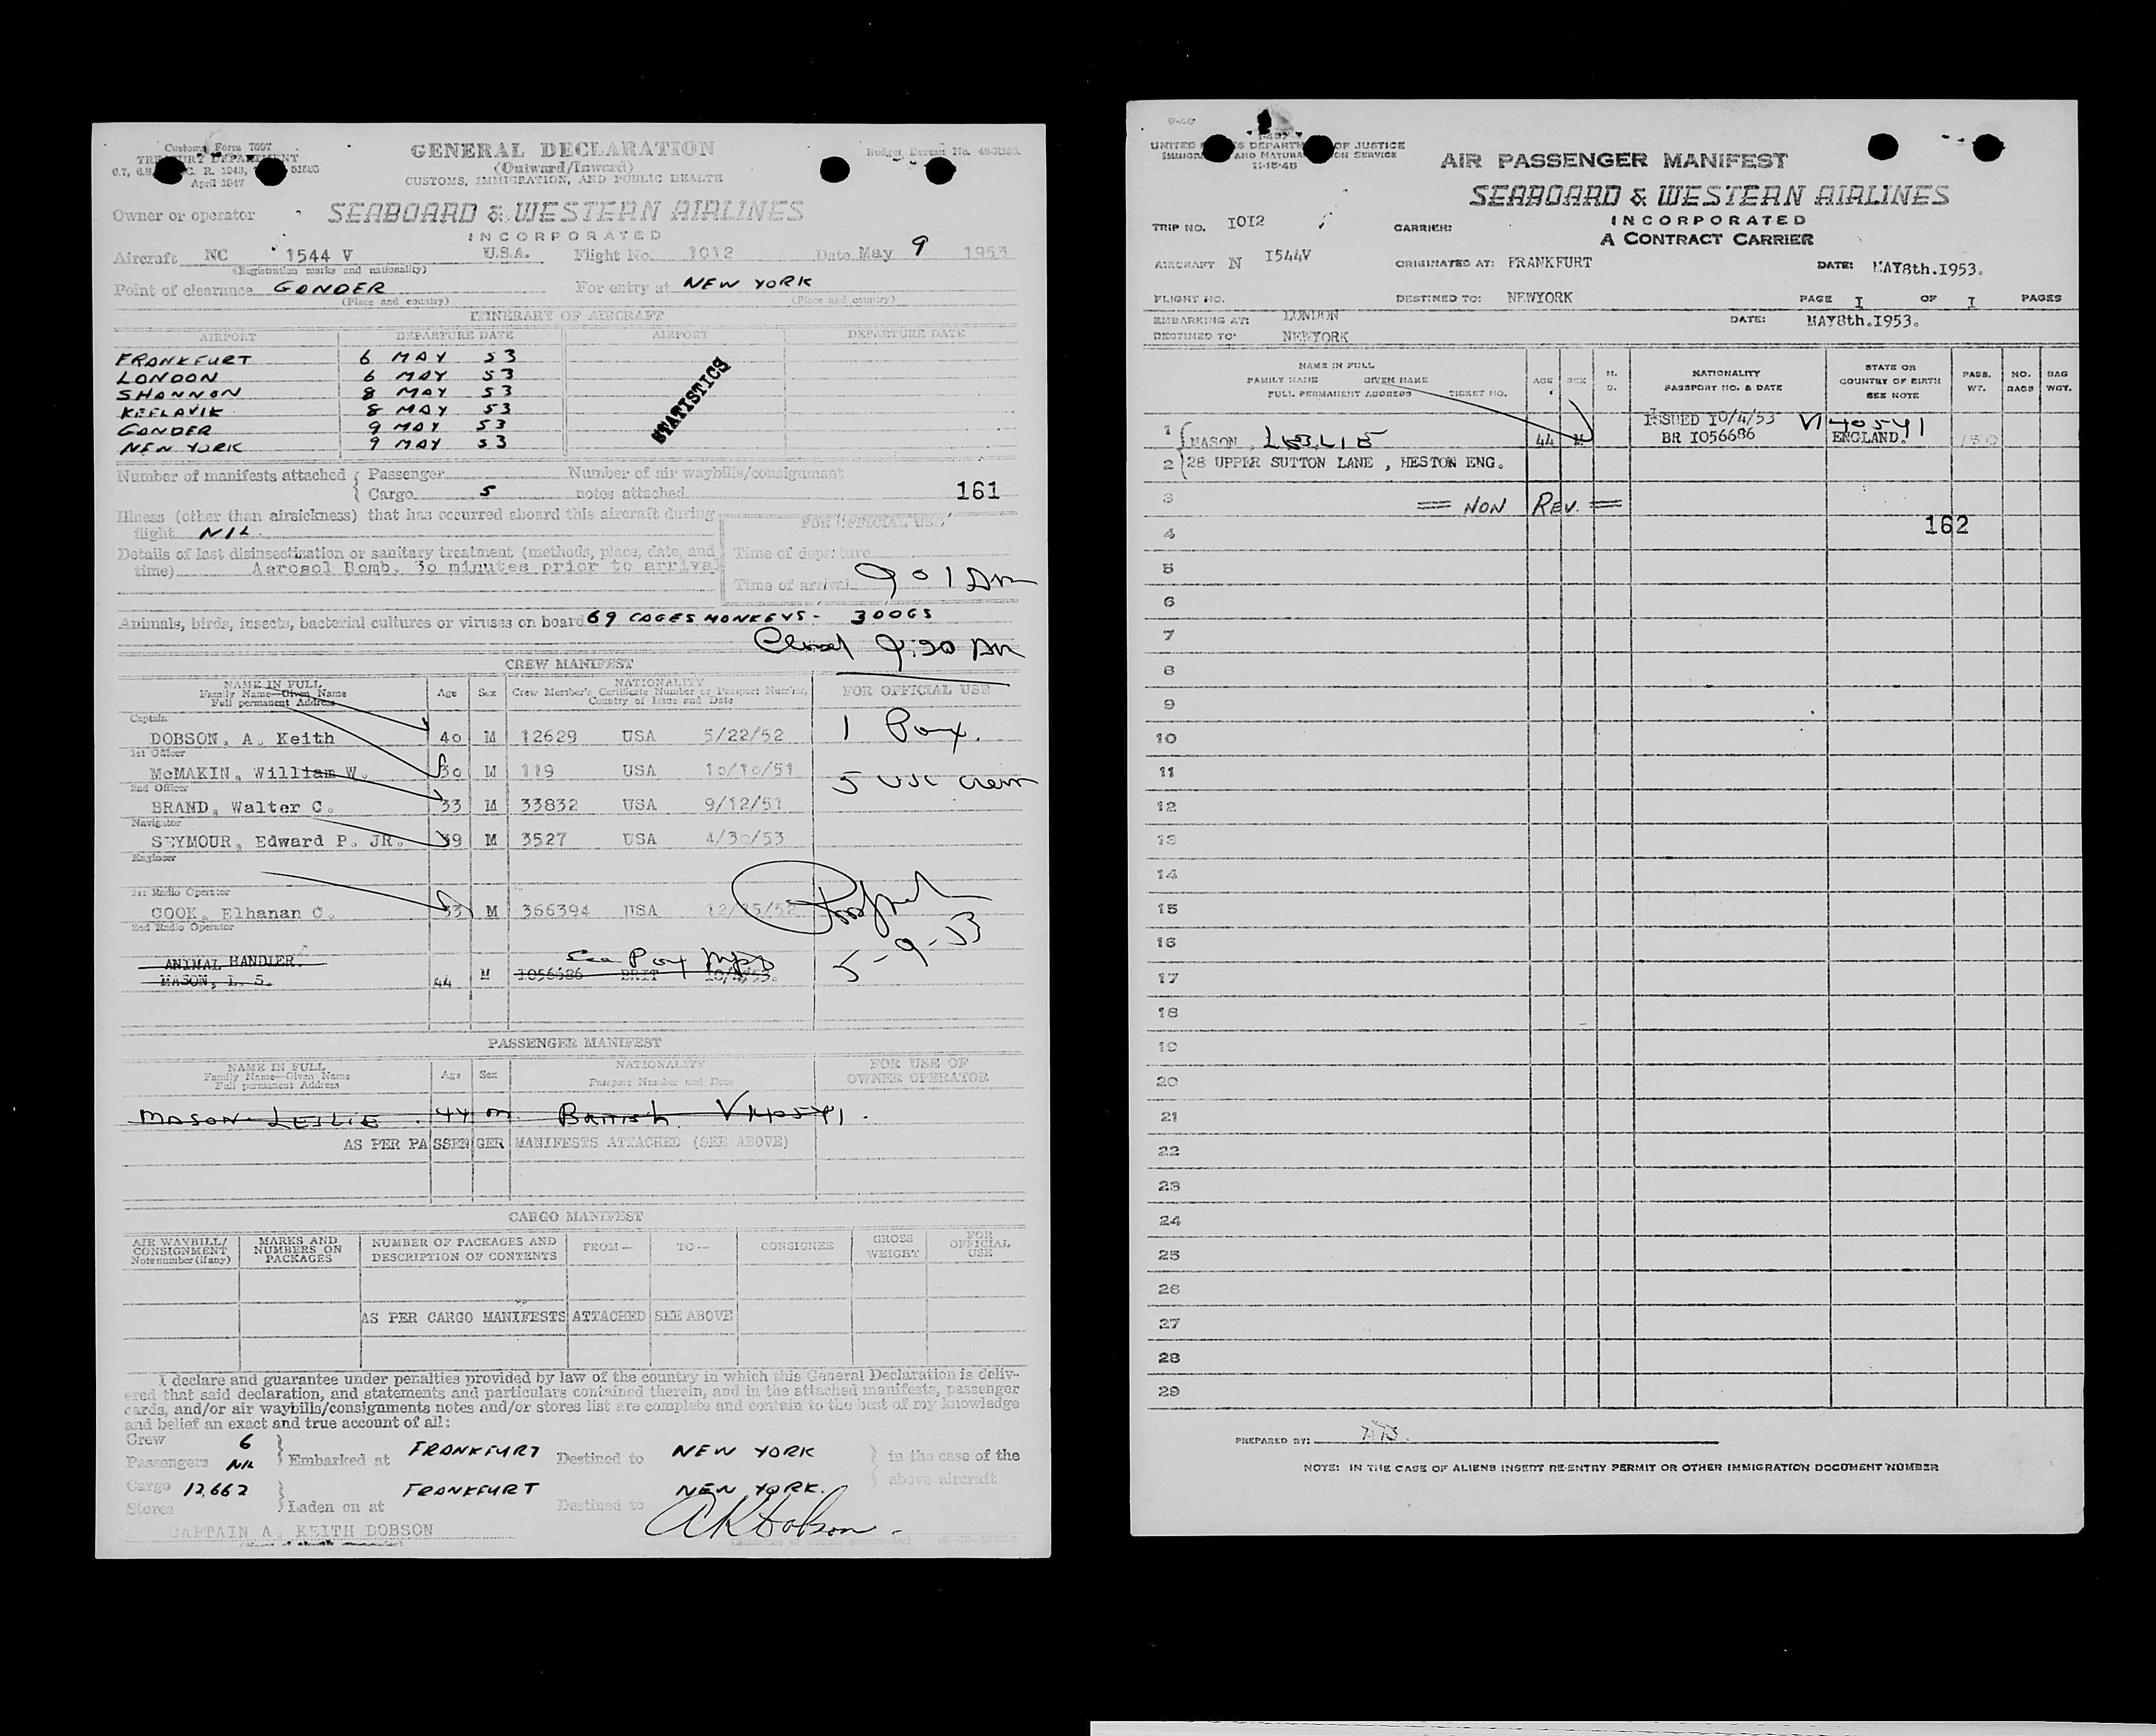 Customs Form 7507
TREASURY DEPARTMENT
April 1947
GENERAL DECLARATION
(Outward/Inward)
CUSTOMS, IMMIGRATION, AND PUBLIC HEALTH
Budget Bureau No.
Owner or operator SEABOARD & WESTERN AIRLINES
INCORPORATED
Aircraft NC 1544 V U.S.A. Flight No. 1012 Date May 9 1953
(Registration marks and nationality)
Point of clearance GANDER For entry at NEW YORK
(Place and country) (Place and country)
ITINERARY OF AIRCRAFT
AIRPORT DEPARTURE DATE AIRPORT DEPARTURE DATE
FRANKFURT 6 MAY 53
LONDON 6 MAY 53
SHANNON 8 MAY 53
KEFLAVIK 8 MAY 53
GANDER 9 MAY 53
NEW YORK 9 MAY 53
STATISTICS
Number of manifests attached { Passenger Number of air waybills/consignment
Cargo 5 notes attached 161
Illness (other than airsickness) that has occurred aboard this aircraft during
flight NIL
FOR OFFICIAL USE
Details of last disinsectization or sanitary treatment (methods, place, date, and
time) Aerosol Bomb. 30 minutes prior to arrival
Time of departure
Time of arrival 901 AM
Animals, birds, insects, bacterial cultures or viruses on board 69 CAGES MONKEYS - 3 DOGS
Closed 9:20 AM
CREW MANIFEST
NAME IN FULL
Family Name—Given Name
Full permanent Address
Age Sex
NATIONALITY
Crew Member's Certificate Number or Passport Number,
Country of Issue and Date
FOR OFFICIAL USE
Captain
DOBSON, A. Keith 40 M 12629 USA 5/22/52 1 Pax.
1st Officer
McMAKIN, William W. 30 M 119 USA 10/10/51 5 USC Crew
2nd Officer
BRAND, Walter C. 33 M 33832 USA 9/12/51
Navigator
SEYMOUR, Edward P. JR. 39 M 3527 USA 4/30/53
Engineer
1st Radio Operator
COOK, Elhanan C. 33 M 366394 USA 12/15/52
2nd Radio Operator
5-9-53
See Pax
ANIMAL HANDLER
MASON, L. S. 44 M 1056686 BRIT 10/4/53.
PASSENGER MANIFEST
NAME IN FULL
Family Name—Given Name
Full permanent Address
Age Sex
NATIONALITY
Passport Number and Date
FOR USE OF
OWNER OPERATOR
MASON LESLIE . 44 M. British V140541.
AS PER PASSENGER MANIFESTS ATTACHED (SEE ABOVE)
CARGO MANIFEST
AIR WAYBILL/
CONSIGNMENT
Note number (if any)
MARKS AND
NUMBERS ON
PACKAGES
NUMBER OF PACKAGES AND
DESCRIPTION OF CONTENTS
FROM— TO— CONSIGNEE
GROSS
WEIGHT
FOR
OFFICIAL
USE
AS PER CARGO MANIFESTS ATTACHED SEE ABOVE
I declare and guarantee under penalties provided by law of the country in which this General Declaration is deliv-
ered that said declaration, and statements and particulars contained therein, and in the attached manifests, passenger
cards, and/or air waybills/consignments notes and/or stores list are complete and contain to the best of my knowledge
and belief an exact and true account of all:
Crew 6
Passengers NIL } Embarked at FRANKFURT Destined to NEW YORK } in the case of the
above aircraft
Cargo 12,662
Stores } Laden on at FRANKFURT Destined to NEW YORK.
CAPTAIN A. KEITH DOBSON
AKDobson
9-48
I-497
UNITED STATES DEPARTMENT OF JUSTICE
IMMIGRATION AND NATURALIZATION SERVICE
11-15-48
AIR PASSENGER MANIFEST
SEABOARD & WESTERN AIRLINES
INCORPORATED
A CONTRACT CARRIER
TRIP NO. I0I2 CARRIER:
AIRCRAFT N I544V ORIGINATED AT: FRANKFURT DATE: MAY8th.I953.
FLIGHT NO. DESTINED TO: NEWYORK PAGE I OF I PAGES
EMBARKING AT: LONDON DATE: MAY8th.I953.
DESTINED TO: NEWYORK
NAME IN FULL
FAMILY NAME GIVEN NAME
FULL PERMANENT ADDRESS TICKET NO.
AGE SEX
M.
S.
NATIONALITY
PASSPORT NO. & DATE
STATE OR
COUNTRY OF BIRTH
SEE NOTE
PASS.
WT.
NO.
BAGS
BAG
WGT.
ISSUED I0/4/53 V140541
1 MASON, LESLIE 44 M BR I056686 ENGLAND. 150
2 28 UPPER SUTTON LANE , HESTON ENG.
3 = NON REV. =
4 162
5
6
7
8
9
10
11
12
13
14
15
16
17
18
19
20
21
22
23
24
25
26
27
28
29
PREPARED BY:
NOTE: IN THE CASE OF ALIENS INSERT RE-ENTRY PERMIT OR OTHER IMMIGRATION DOCUMENT NUMBER